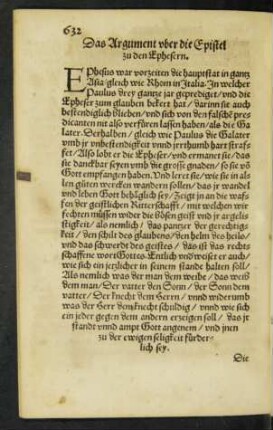 632
Das Argument vber die Epistel
zu den Ephesern.
EPhesus war vorzeiten die hauptstat in gantz
Asia/ gleich wie Rhom in Italia. In welcher
Paulus drey gantze jar geprediget/ vnd die
Epheser zum glauben bekert hat/ darinn sie auch
bestendiglich blieben/ vnd sich von den falschē pre=
dicanten nit also verfüren lassen haben/ als die Ga
later. Derhalben/ gleich wie Paulus die Galater
vmb jr vnbestendigkeit vnnd jrrthumb hart straf=
fet/ Also lobt er die Epheser/ vnd ermanet sie/ das
sie danckbar seyen vmb die grosse gnaden/ so sie vō
Gott empfangen haben. Vnd leret sie/ wie sie in al=
len güten wercken wandern sollen/ das jr wandel
vnd leben Gott behäglich sey/ Zeigt jn an die waf=
fen der geistlichen Ritterschafft/ mit welchen wir
fechten müssen wider die bösen geist vnd jr argelis
stigkeit/ als nemlich/ das pantzer der gerechtig=
keit/ den schilt des glaubens/ den helm des heils/
vnd das schwerdt des geistes/ das ist das recht=
schaffene wort Gottes. Entlich vnderweiset er auch/
wie sich ein jetzlicher in seinem stande halten soll/
Als nemlich was der man dem weibe/ das weib
dem man/ Der vatter den Sonn/ der Sonn dem
vatter/ Der knecht dem Herrn/ vnnd widerumb
was der Herr dem knecht schuldig/ vnnd wie sich
ein jeder gegen dem andern erzeigen soll/ das jr
standt vnnd ampt Gott angenem/ vnd jnen
zu der ewigen seligkeit fürder=
lich sey.
Die